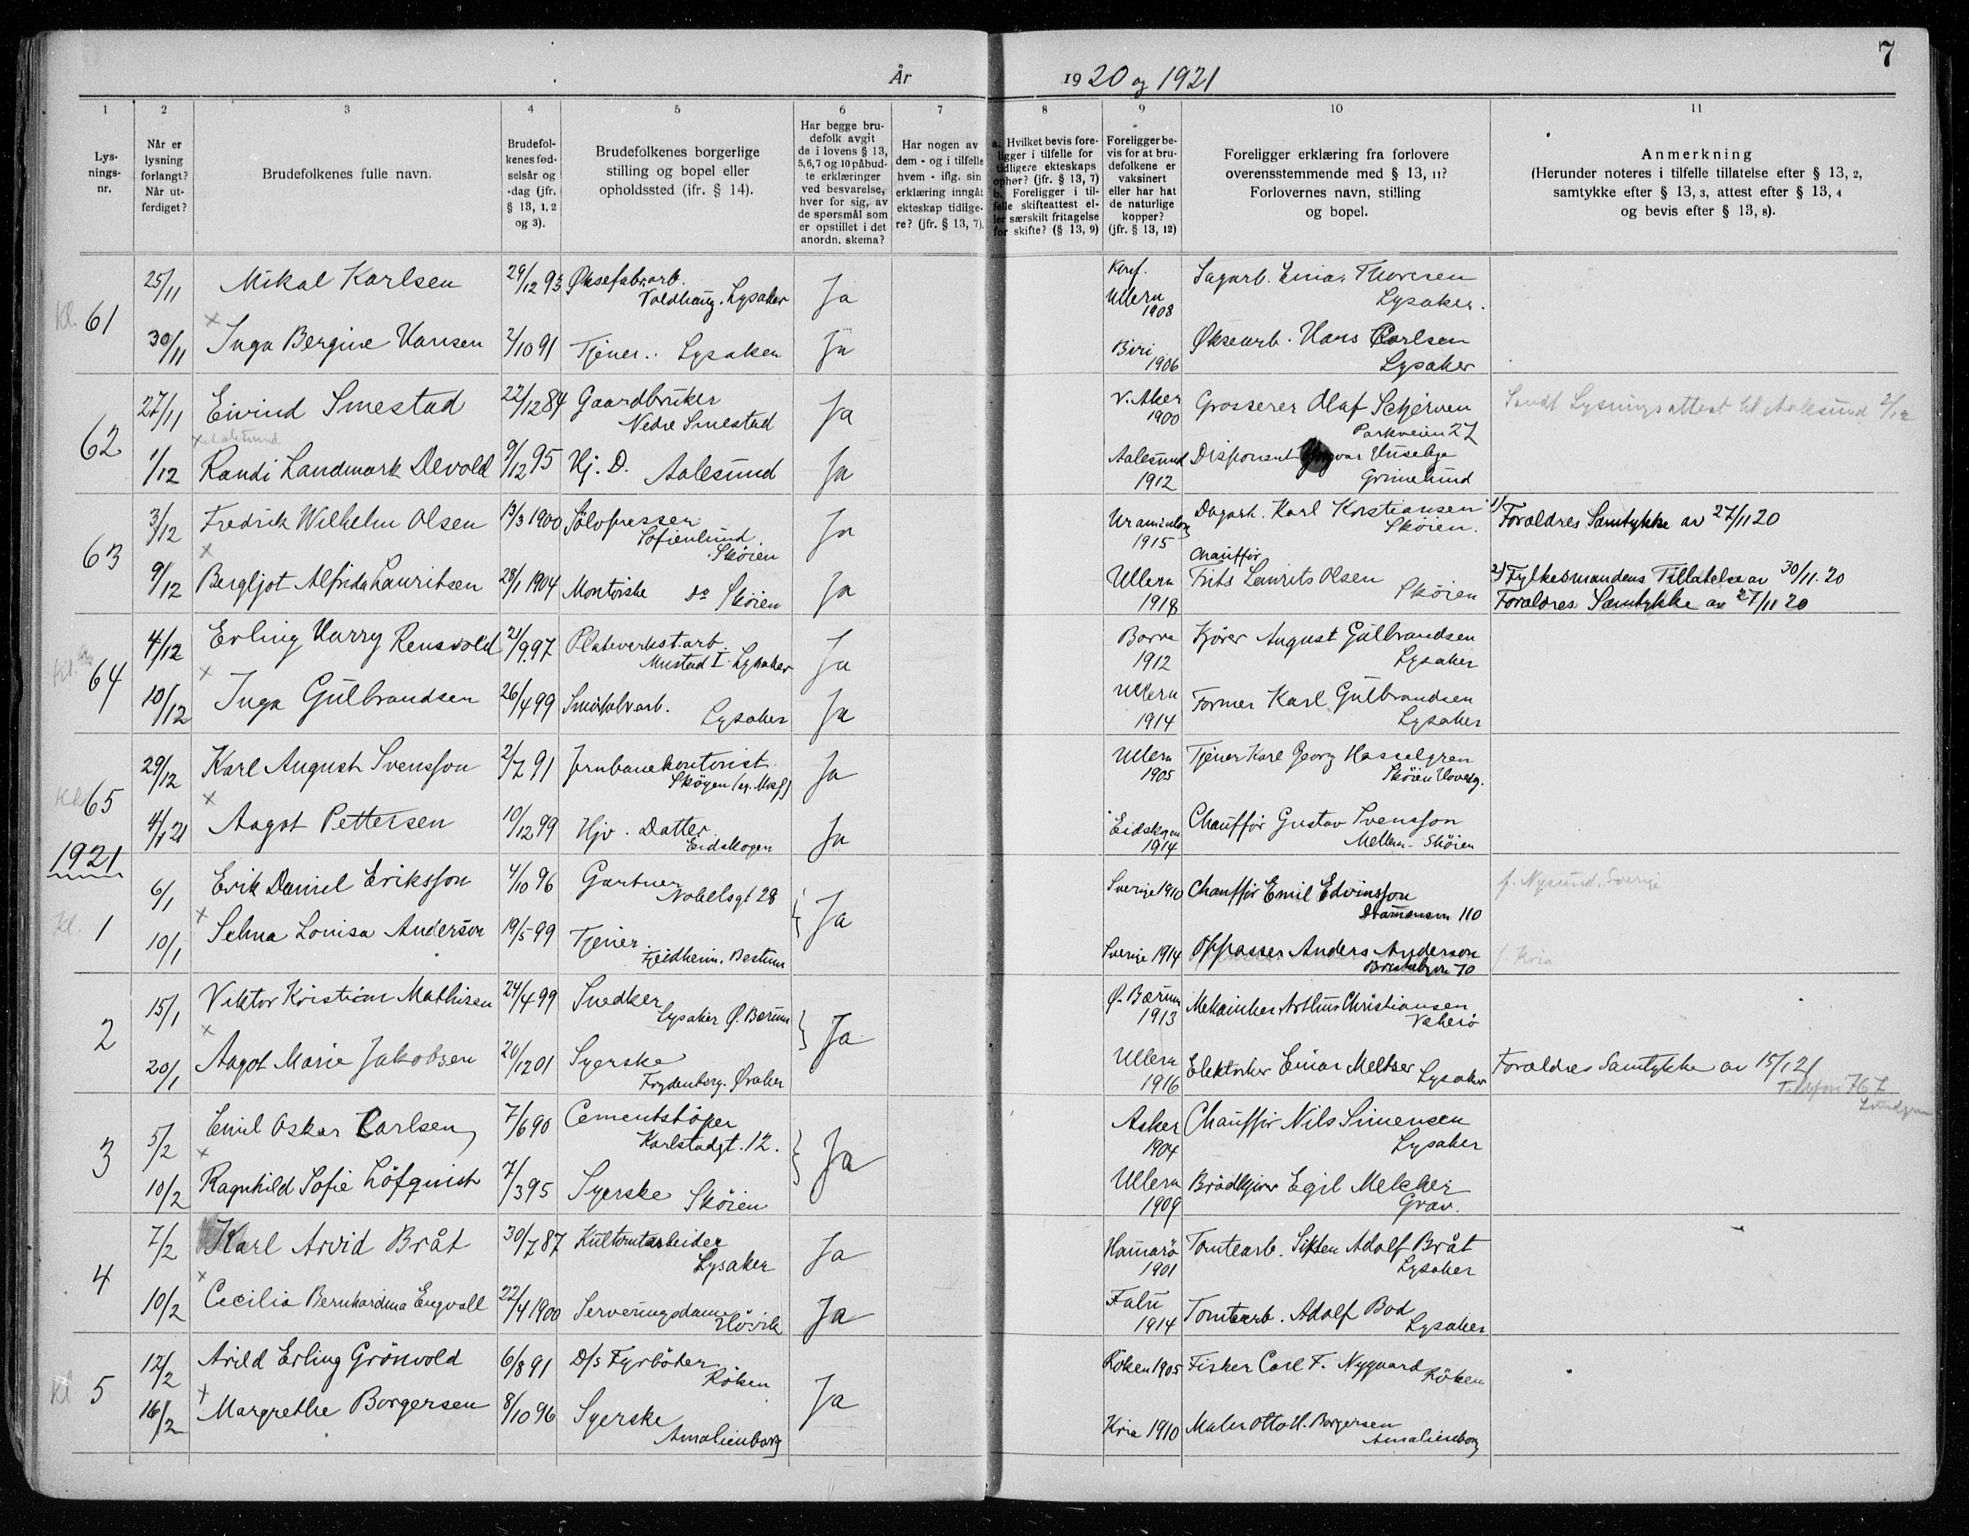 7
År 1920 og 1921
1 2 3 4 5 6 7 8 9 10 11
Lys-
nings-
nr.
Når er
lysning
forlangt?
Når ut-
ferdiget?
Brudefolkenes fulle navn.
Brudefol-
kenes fød-
selsår og
-dag (jfr.
§ 13, 1, 2
og 3).
Brudefolkenes borgerlige
stilling og bopel eller
opholdssted (ifr. § 14).
Har begge bru-
defolk avgit
de i lovens § 13,
5,6,7 og 10 påbud-
te erklæringer
ved besvarelse,
hver for sig, av
de spørsmål som
er opstillet i det
anordn. skema?
Har nogen av
dem - og i tilfelle
hvem - iflg. sin
erklæring inngåt
ekteskap tidlige-
re? (jfr. § 13, 7).
a. Hvilket bevis fore-
ligger i tilfelle for
tidligere ekteskaps
ophør? (jfr. § 13, 7)
b. Foreligger i til-
felle skifteattest el-
ler særskilt fritagelse
for skifte? (§ 13, 9)
Foreligger be-
vis for at bru-
defolkene er
vaksinert
eller har hat
de naturlige
kopper?
(jfr. § 13, 12)
Foreligger erklæring fra forlovere
overensstemmende med § 13, 11?
Forlovernes navn, stilling
og bopel.
Anmerkning
(Herunder noteres i tilfelle tillatelse efter § 13, 2,
samtykke efter § 13, 3, attest efter § 13, 4
og bevis efter § 13, 8).
Kl. 61 25/11 Mikal Karlsen 29/12 93 Øksefabr.arb. Voldhaug. Lysaker Ja Konf. Ullern 1908 Sagarb. Einar Thoresen Lysaker.
30/11 × Inga Bergine Hansen 2/10 91 Tjener.. Lysaker Ja Biri 1906 Øksearb. Hans Carlsen Lysaker
62 27/11 Eivind Smestad 22/12 84 Gaardbruker Nedre Smestad Ja V. Aker 1900 Grosserer Olaf Schjerven Parkveien 27 Sendt Lysningsattest til Aalesund 2/12
1/12 Randi Landmark Devold 9/12 95 Hj. D. Aalesund Ja Aalesund 1912 Disponent Yngvar Huseby Grimelund
63 3/12 Fredrik Wilhelm Olsen 13/3 1900 Sølvpresser Sofienlund. Skøien Ja 1915 Dagarb. Karl Kristiansen Skøien. 1) Foraldres Samtykke av 27/11 20
9/12 × Bergljot Alfrida Lauritsen 28/1 1904 Montørske do Skøien Ja Ullern 1918 Chauffør Frits Laurits Olsen Skøien 2) Fylkesmandens Tillatelse av 30/11.20
Foraldres Samtykke av 27/11 20
64 4/12 Erling Harry Rensvold 21/9.97 Plateverkst.arb. Mustad I. Lysaker Ja Borre 1912 Kjører August Gulbrandsen Lysaker
10/12 × Inga Gulbrandsen 26/4 99 Lysaker Ja Ullern 1914 Former Karl Gulbrandsen Lysaker
65 29/12 Karl August Svensson 2/7 91 Jernbanekontorist Skøyen Ja Ullern 1905 Tjener Karl Georg Hasselgren Skøien Hovedg.
4/1 21 × Aagot Pettersen 10/12 99 Hjv. Datter Eidskogen Ja Eidskogen 1914 Chauffør Gustav Svensson Mellem-Skøien
1921
Kl. 1 6/1 Erik Daniel Eriksson 4/10 96 Gartner Nobelsgt 28 Ja Sverige 1910 Chauffør Emil Edvinsson Drammensvn 110 f. Nysund, Sverige
10/1 × Selma Lovisa Anderson 19/5 99 Tjener Fjeldheim. Bestum Sverige 1914 Oppasser Anders Anderson 70 f. Kria
2 15/1 Viktor Kristian Mathisen 24/4 99 Snedker Lysaker Ø. Bærum Ja Ø. Bærum 1913 Mekaniker Arthur Christiansen Vækerø
20/1 × Aagot Marie Jakobsen 20/12 01 Syerske Frydenberg. Øraker Ullern 1916 Elektriker Einar Meltzer Lysaker Foraldres Samtykke av 15/1 21
Telefon 767
3 5/2 Emil Oskar Carlsen 7/6 90 Cementstøper Karlstadgt. 12. Ja Asker 1904 Chauffør Nils Simensen Lysaker
10/2 × Ragnhild Sofie Löfqvist 7/3 95 Syerske Skøien Ullern 1909 Brødkjører Egil Melcher Grav.
4 7/2 Karl Arvid Bråt 30/7 87 Lysaker Ja Hamarø 1901 Tomtearb. Sixten Adolf Bråt Lysaker
10/2 × Cecilia Bernhardina Engvall 22/4 1900 Serveringsdame Høvik Ja Falu 1914 Tomtearb. Adolf Bod Lysaker
Kl 5 12/2 Arild Erling Grönvold 6/8 91 D/s Fyrbøter Røken Ja Røken 1905 Fisker Carl F. Nygaard Røken
16/2 × Margrethe Borgersen 8/10 96 Syerske Amalienborg Kria 1910 Maler Otto H. Borgersen Amalienborg